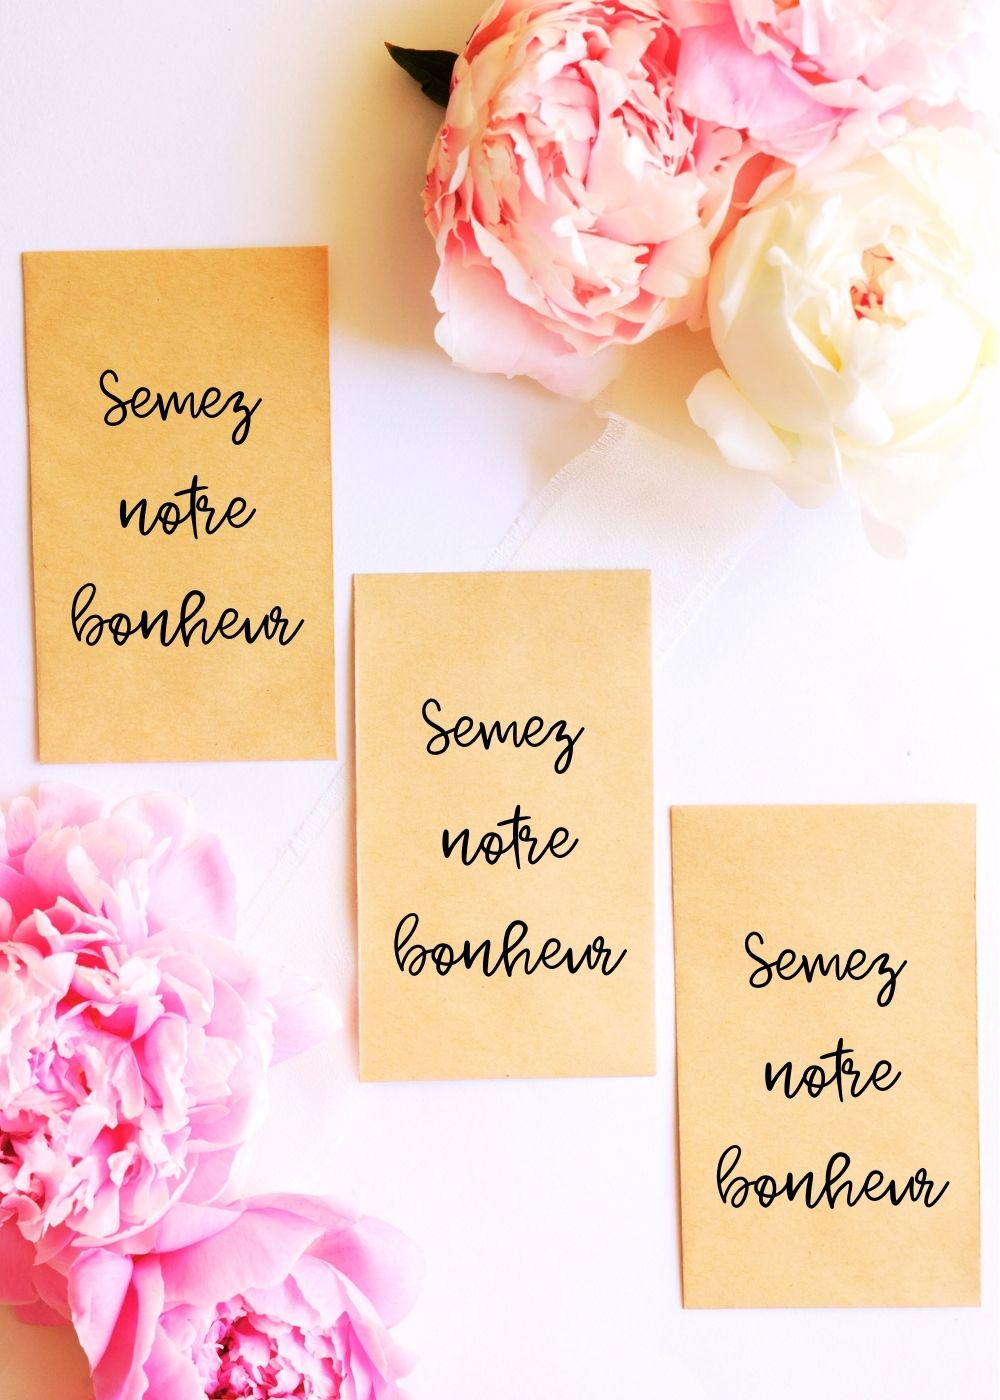 Semez
notre
bonheur
Semez
notre
bonheur
Semez
notre
bonheur